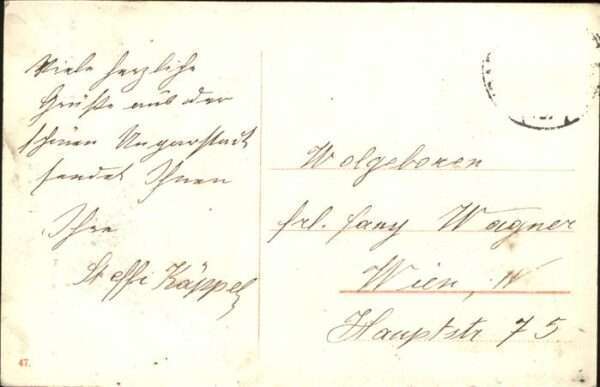 Viele herzliche
Grüße aus der
schönen Ungarstadt
sendet Ihnen
Ihre
Steffi Käppel
Wolgeboren
Frl. Fany Wagner
Wien, IV
Hauptstr 75
47.